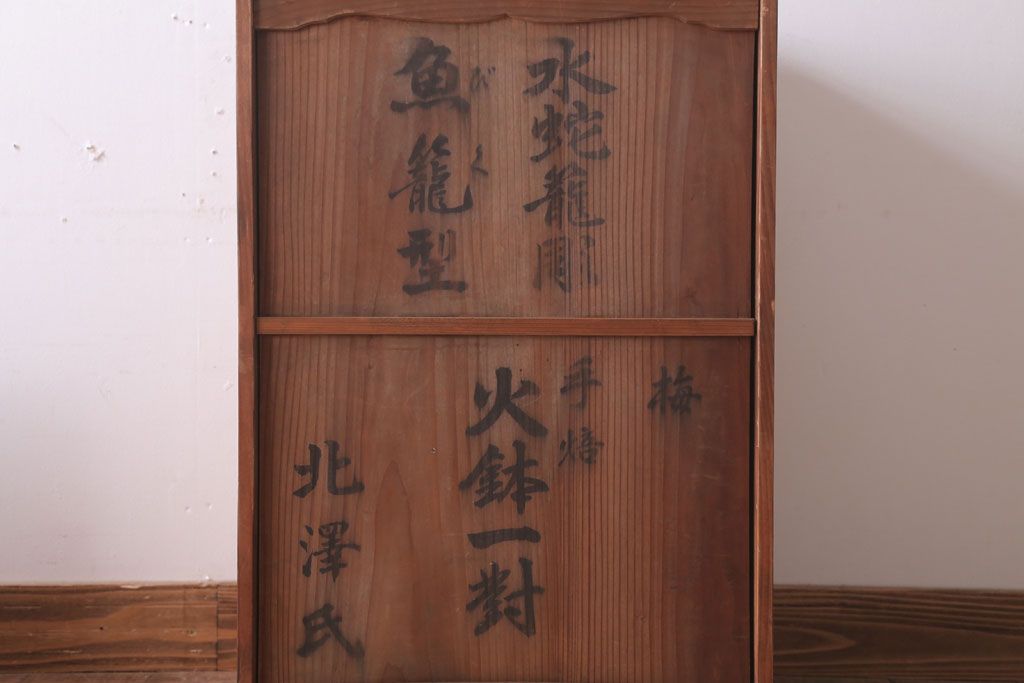 水蛇籠彫
魚籠型
びく
梅
手焙
火鉢一對
北澤氏